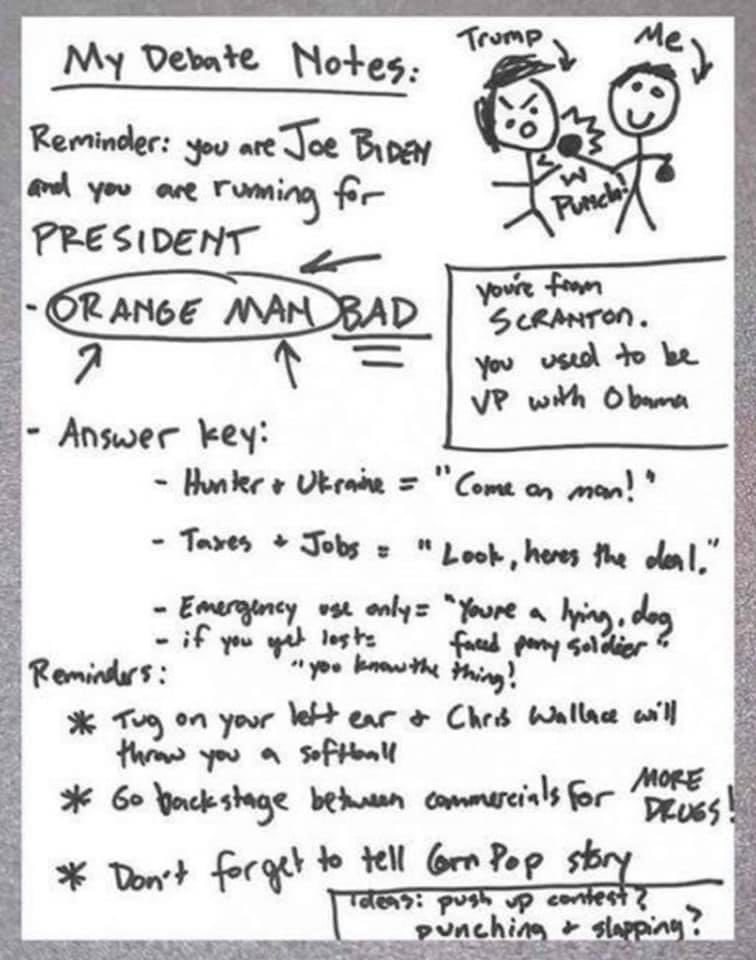 My Debate Notes:
Trump
Me
Punch!
Reminder: you are Joe BIDEN
and you are running for
PRESIDENT
- ORANGE MAN BAD
you're from
SCRANTON.
you used to be
VP with Obama
- Answer key:
- Hunter + Ukraine = "Come on man!"
- Taxes + Jobs = "Look, heres the deal."
- Emergency use only = "Youre a lying, dog
faced pony soldier"
- if you get lost=
"you know the thing!
Reminders:
* Tug on your left ear + Chris Wallace will
throw you a softball
* Go backstage between commercials for MORE
DRUGS!
* Don't forget to tell Corn Pop story
ideas: push up contest?
punching + slapping?